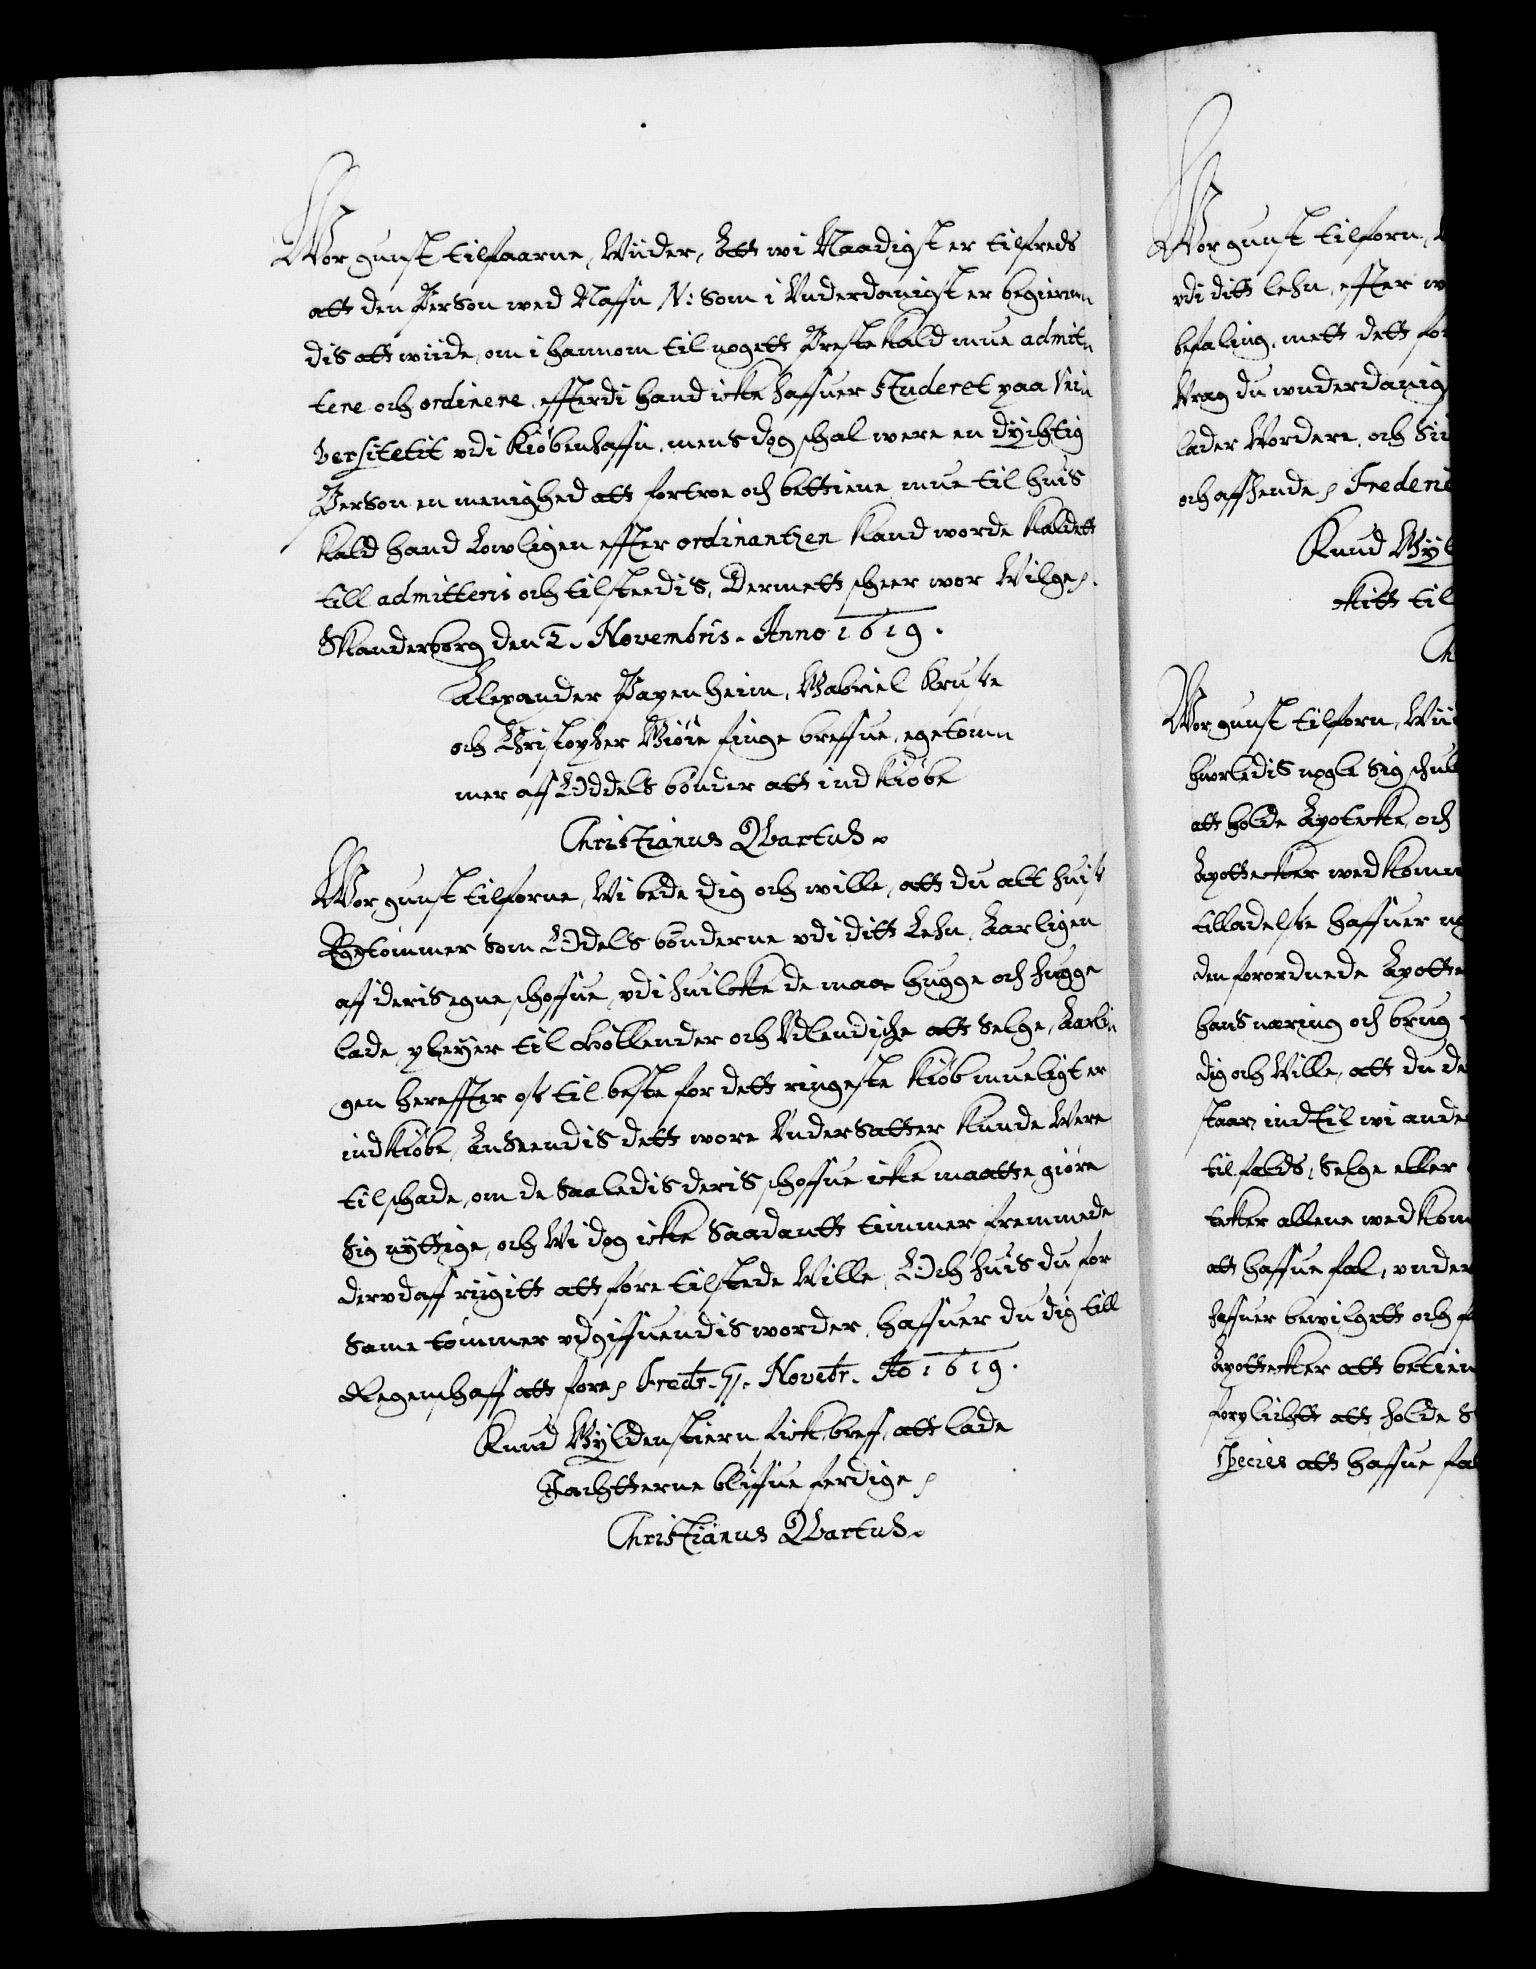 Wor gunst tilfaarne, Wiider, Att wi Naadigst er tilfreds
att den Person wed Naffn N: som i Vnderdanigst er begieren
dis att wiide, om i hannom til nogett Preste kald mue admit
tere och ordinere, effterdi hand icke haffuer Studeret paa Vni
versitetit vdi Kiøbenhaffn, mens dog schal were en dychtig
Person en menighed att fortroe och bettiene, mue til huis
kald hand Lowligen effter ordinantzen kand worde kaldett
till admitteris och tilstedis, Dermett scheer wor Wilge,
Skanderborg den 2. Novembris. Anno 1619.
Alexander Papenheim, Gabriel Kruse
och Christopher Giøie finge breffue, egetøm
mer aff Oddels bønder att ind kiøbe
Christianus Qvartus.
Wor gunst tilforne, Wi bede dig och wille, att du alt huis
Egetømmer som Oddels bønderne vdi ditt Lehn, Aarligen
aff deris egne schoffue, vdi huilcke de maa hugge och hugge
lade, pleyer til Hollender och Vdlendische att selge, Aarli
gen hereffter oss til beste for dett ringeste kiøb mueligt er
indkiøbe, Anseendis dett wore Vndersatter kunde Were
til schade, om de saaledis deris schoffue icke maatte giøre
sig nyttige, och Wi dog icke saadantt timmer fremmede
dervdaff riigitt att føre tilstede Wille, Och huis du for
same tømmer vdgiffuendis worder, haffuer du dig till
Regenschaff att føre, Fredr. 7. Novebr. Ao 1619.
Knud Gyldenstiern fick breff, att lade
Jachtterne bliffue ferdige,
Christianus Qvartus.
Wor gunst tilforn,
vdi ditt lehn, effter
befaling, mett dett
Vrag du wnderdanig
lader Wordere, och
och affsende, Frederi
Knud Gyl
kitt til
Wor gunst tilforn, Wii
hworledis nogle sig
att holde Apotecke, och
Apottecker wedkom
tilladelse haffuer
den forordnede Apotte
hans næring och brug
dig och Wille, att du de
staar indtil wi ande
til falds, selge eller
tecker allene wedkom
att haffue fal, vnder
haffuer bewilgett och
Apottecker att betien
forplichtt att holde
Species att haffue fal